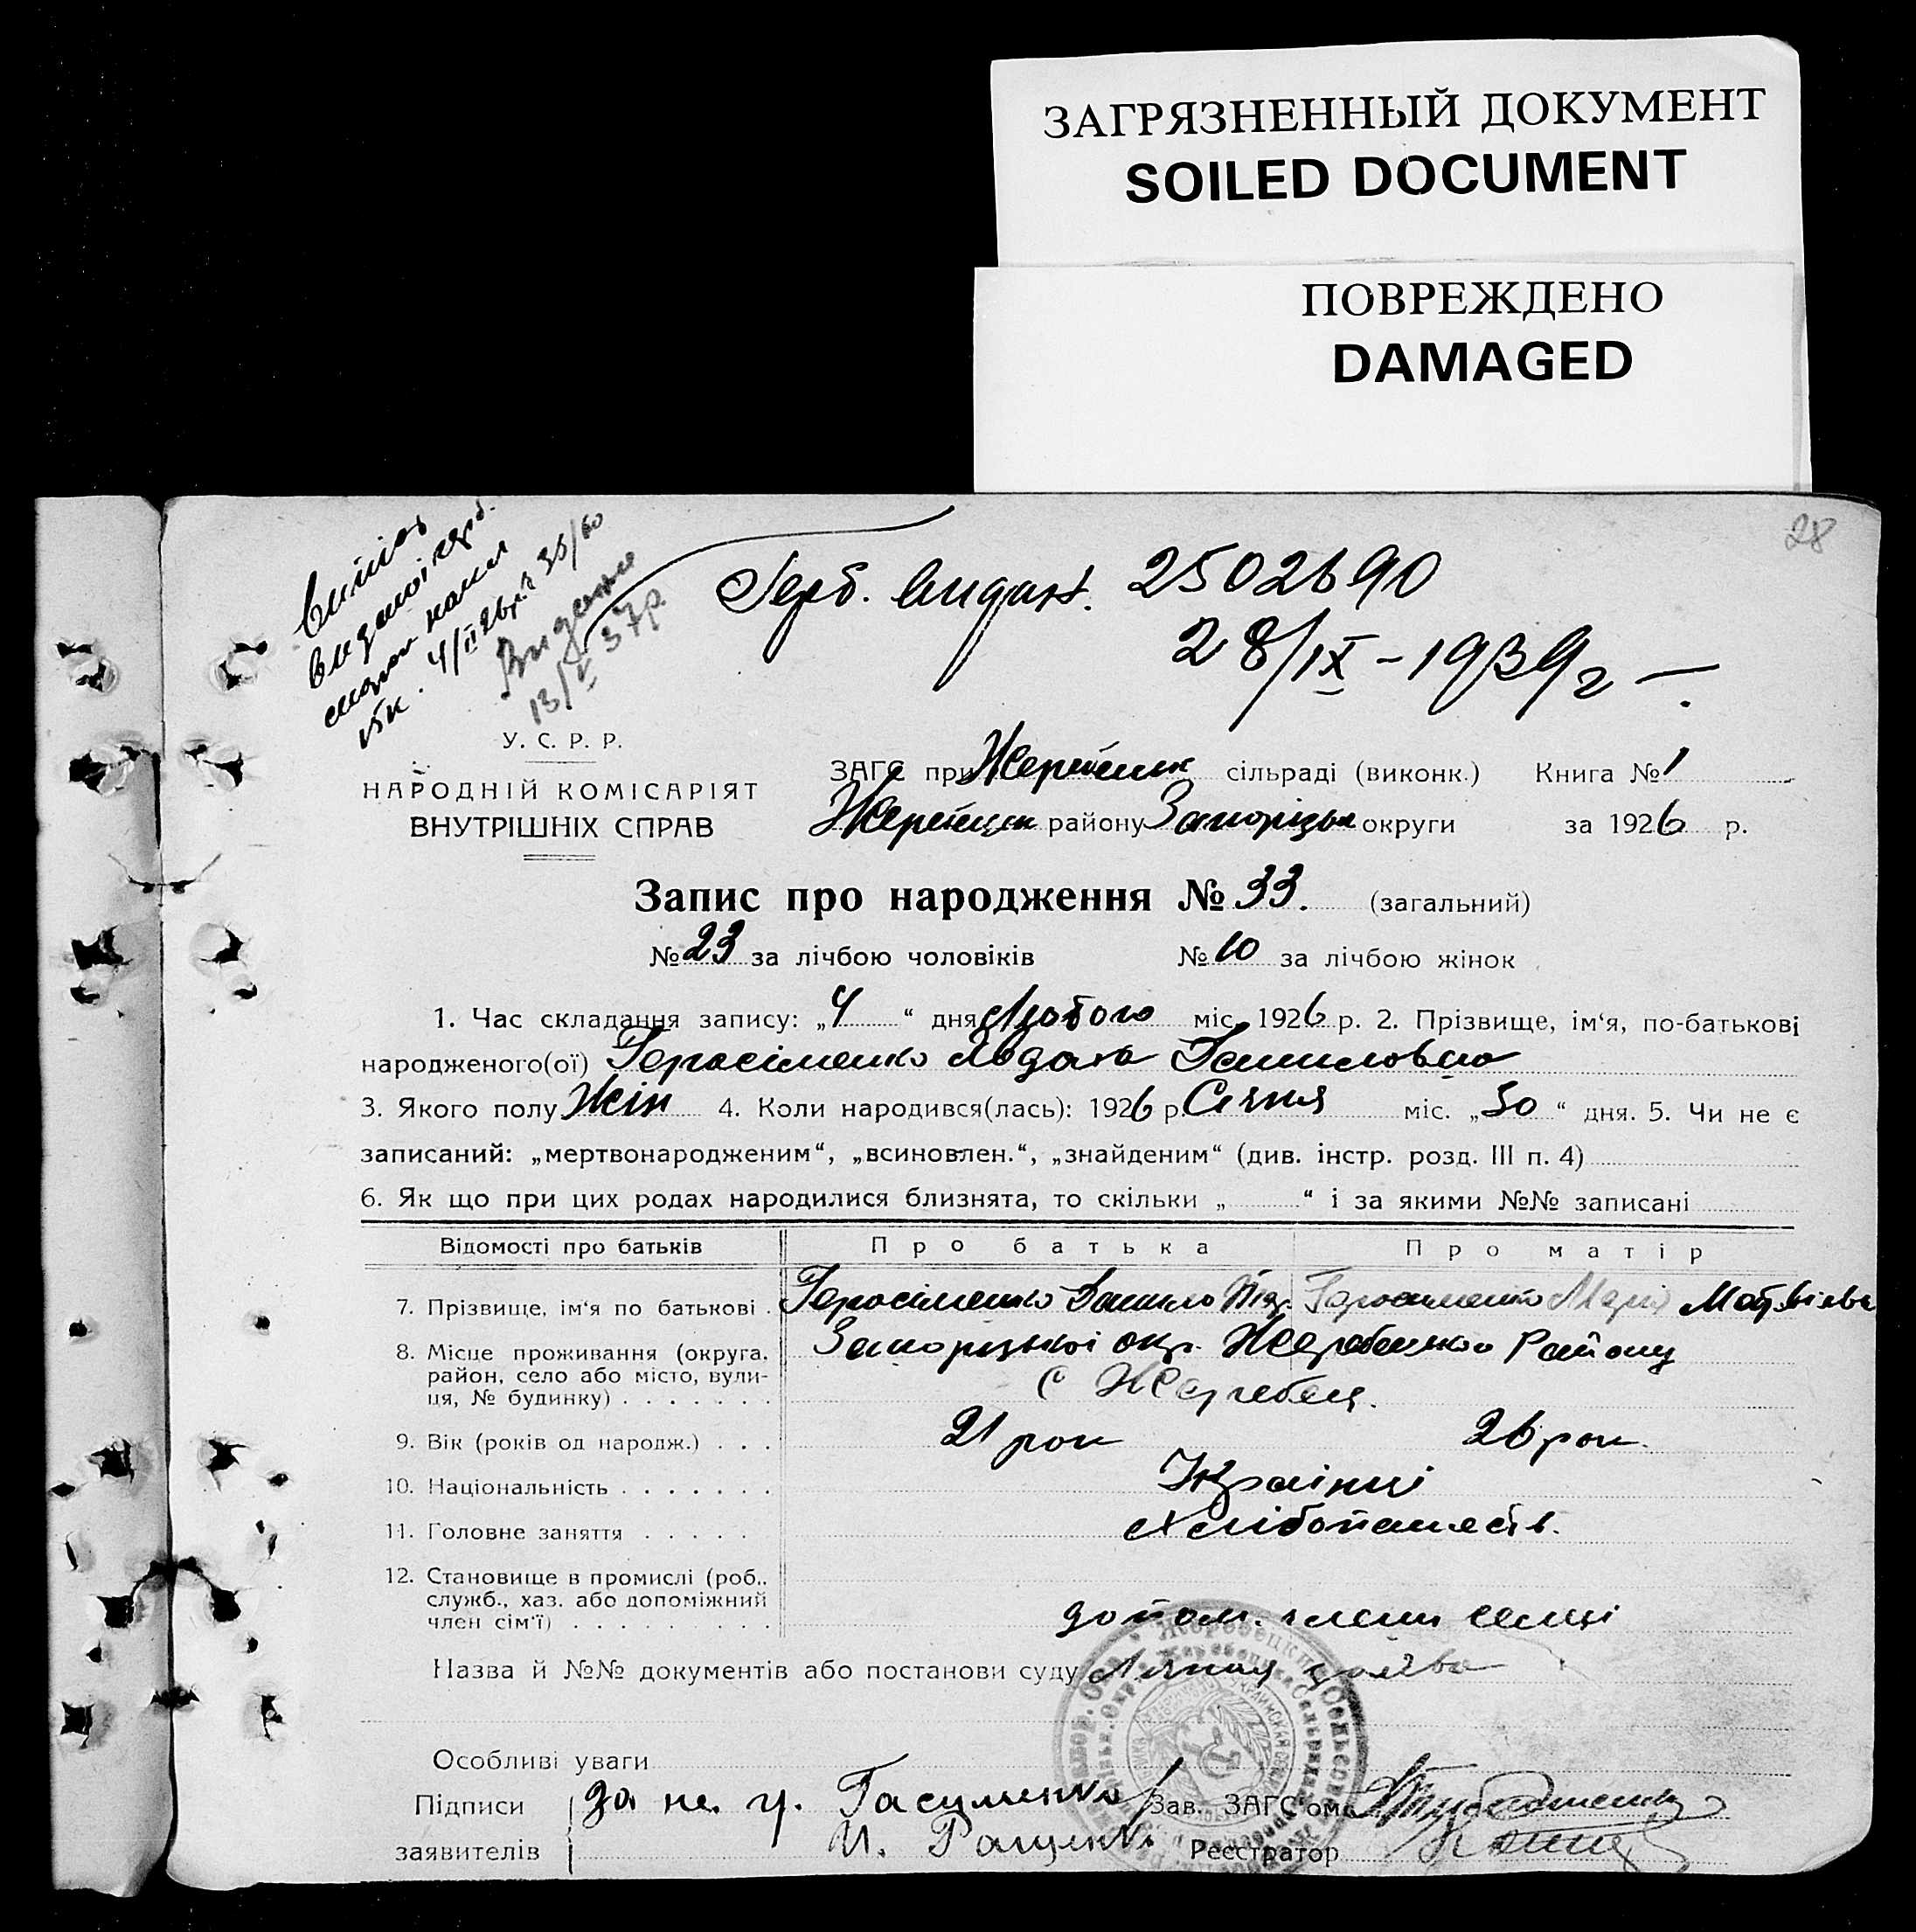 ЗАГРЯЗНЕННЫЙ ДОКУМЕНТ
SOILED DOCUMENT
ПОВРЕЖДЕНО
DAMAGED
28
Герб. видан. 2502690
28/IX - 1939 г
13/V 37р.
У. С. Р. Р.
НАРОДНІЙ КОМІСАРІЯТ
ВНУТРІШНІХ СПРАВ
ЗАГС при сільраді (виконк.) Книга № 1
району Запорізьк округи за 1926 р.
Запис про народження № 33. (загальний)
№ 23 за лічбою чоловіків № 10 за лічбою жінок
1. Час складання запису: „4“ дня Лютого міс. 1926 р. 2. Прізвище, ім‘я, по-батькові
народженого(ої) Герасіменко Даниловна
3. Якого полу Жін 4. Коли народився(лась): 1926 р. Січня міс. „30“ дня. 5. Чи не є
записаний: „мертвонародженим“, „всиновлен.“, „знайденим“ (див. інстр. розд. III п. 4)
6. Як що при цих родах народилися близнята, то скільки „ “ і за якими №№ записані
Відомості про батьків Про батька Про матір
7. Прізвище, ім‘я по батькові . Герасіменко Данило Герасименко Марія
8. Місце проживання (округа, Запорізької окр. Жеребецького Району
район, село або місто, вули-
ця, № будинку) . . . . . . . с Жеребець.
9. Вік (років од народж.) . . . 21 рок 26 рок.
10. Національність . . . . . . . Українці
11. Головне заняття . . . . . Хлібопашеств.
12. Становище в промислі (роб.,
служб., хаз. або допоміжний
член сім‘ї) . . . . . . . . . допом. члени семці
Назва й №№ документів або постанови суду
Особливі уваги
Підписи За не гр. Зав. ЗАГС‘ом
заявителів И. Реєстратор